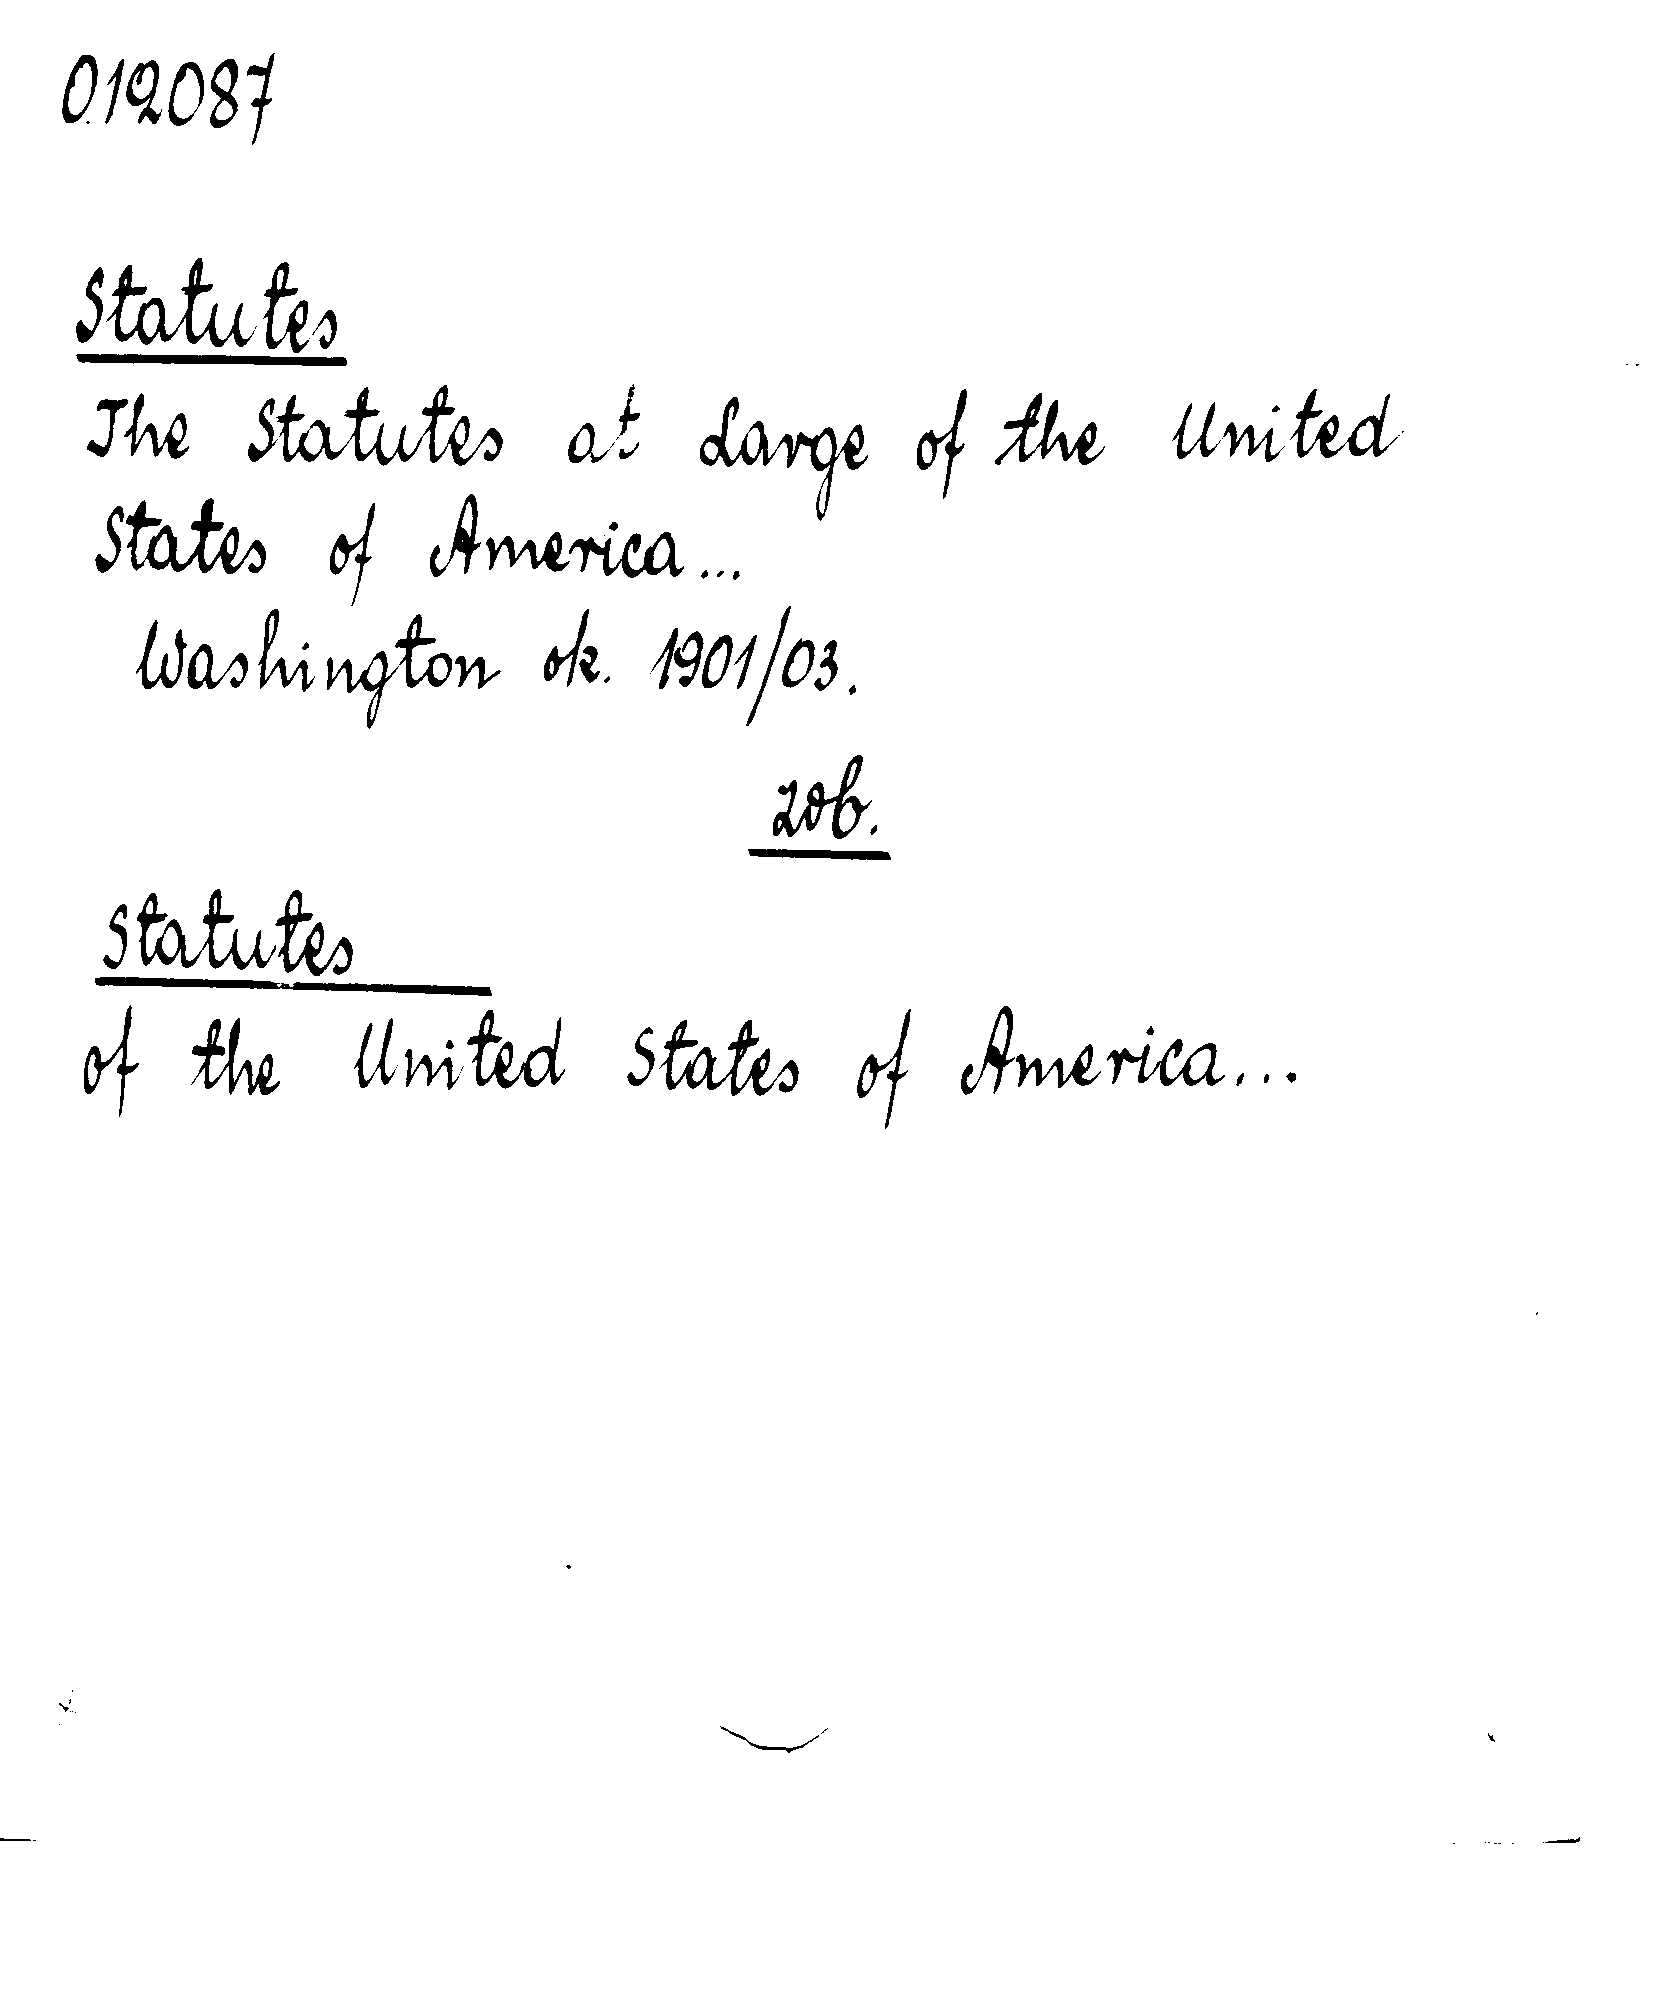 012087
Statutes
The Statutes at Large of the United
States of America...
Washington ok. 1901/03.
zob.
Statutes
of the United States of America...